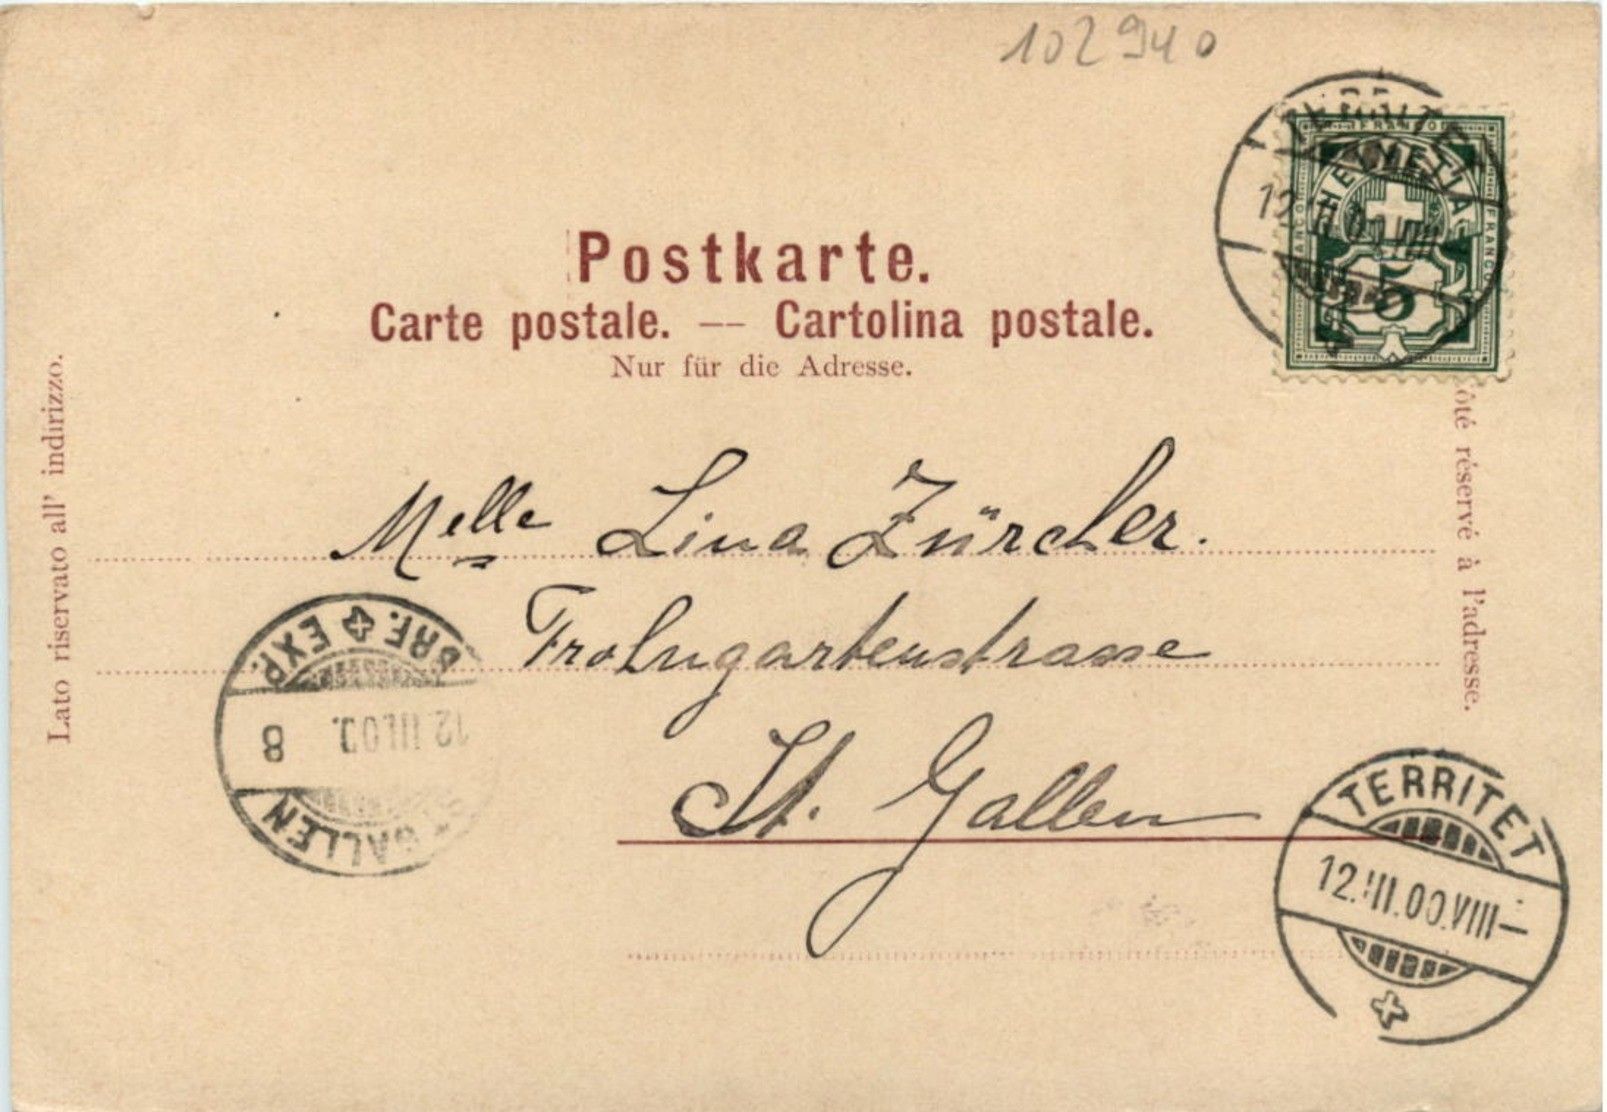 102940
TERRITET
12.III.00.VIII
FRANCO
HELVETIA
FRANCO
5
Postkarte.
Carte postale. — Cartolina postale.
Nur für die Adresse.
Lato riservato all' indirizzo.
ôté réservé à l'adresse.
Melle Lina Zürcher.
Frohngartenstrasse
St. Gallen
BRF. EXP.
12.III.00. 8
ST GALLEN
TERRITET
12.III.00.VIII—